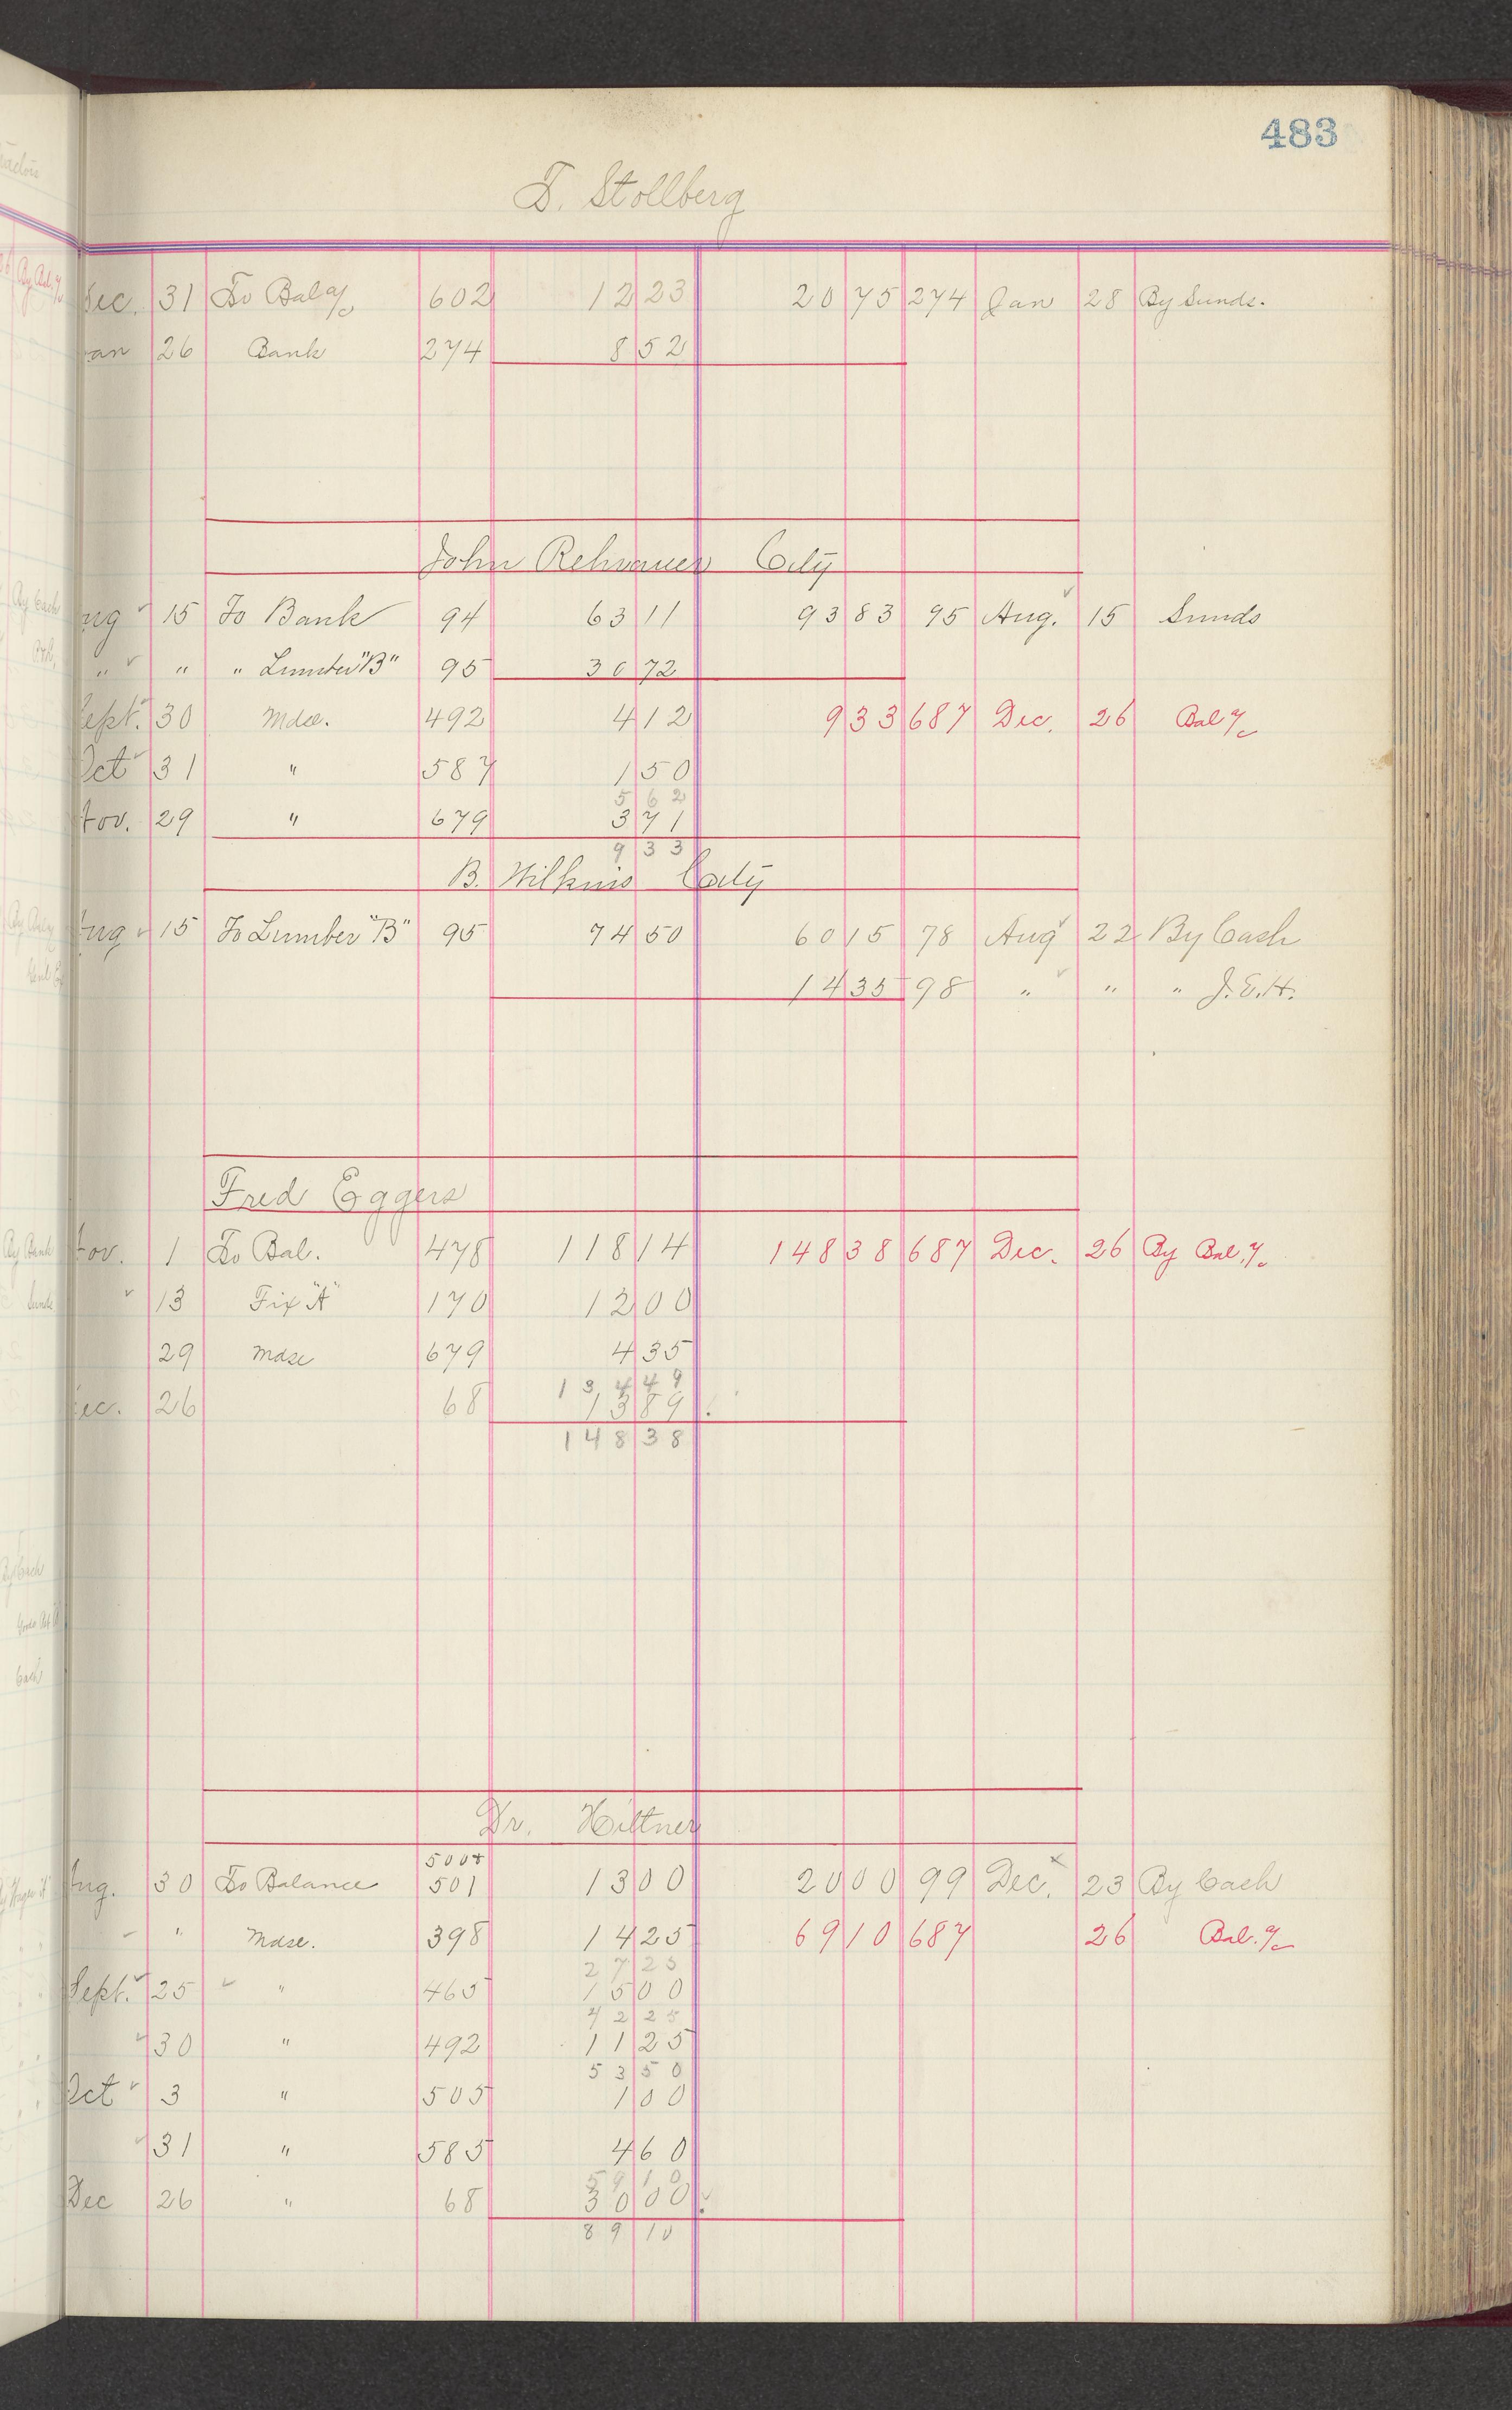 483
F. Stollberg
Dec. 31 To Bal a/c 602 12 23 20 75 274 Jan 28 By Sunds.
Jan 26 Bank 274 8 52
John Rehwauer City
Aug 15 To Bank 94 63 11 93 83 95 Aug. 15 Sunds
" " " Lumber "B" 95 30 72
Sept. 30 Mdse. 492 4 12 9 33 687 Dec. 26 Bal a/c
Oct 31 " 587 1 50
5 62
Nov. 29 " 679 3 71
9 33
B. Wilkins City
Aug 15 To Lumber "B" 95 74 50 60 15 78 Aug 22 By Cash
14 35 98 " " " J.E.H.
Fred Eggers
Nov. 1 To Bal. 478 118 14 148 38 687 Dec. 26 By Bal. a/c
13 Fix "A" 170 12 00
29 Mdse 679 4 35
134 49
Dec. 26 68 13 89
148 38
Dr. Hiltner
500+
Aug. 30 To Balance 501 13 00 20 00 99 Dec. 23 By Cash
" Mdse. 398 14 25 69 10 687 26 Bal. a/c
27 25
Sept. 25 " 465 15 00
42 25
30 " 492 11 25
53 50
Oct 3 " 505 1 00
31 " 585 4 60
59 10
Dec 26 " 68 30 00
89 10